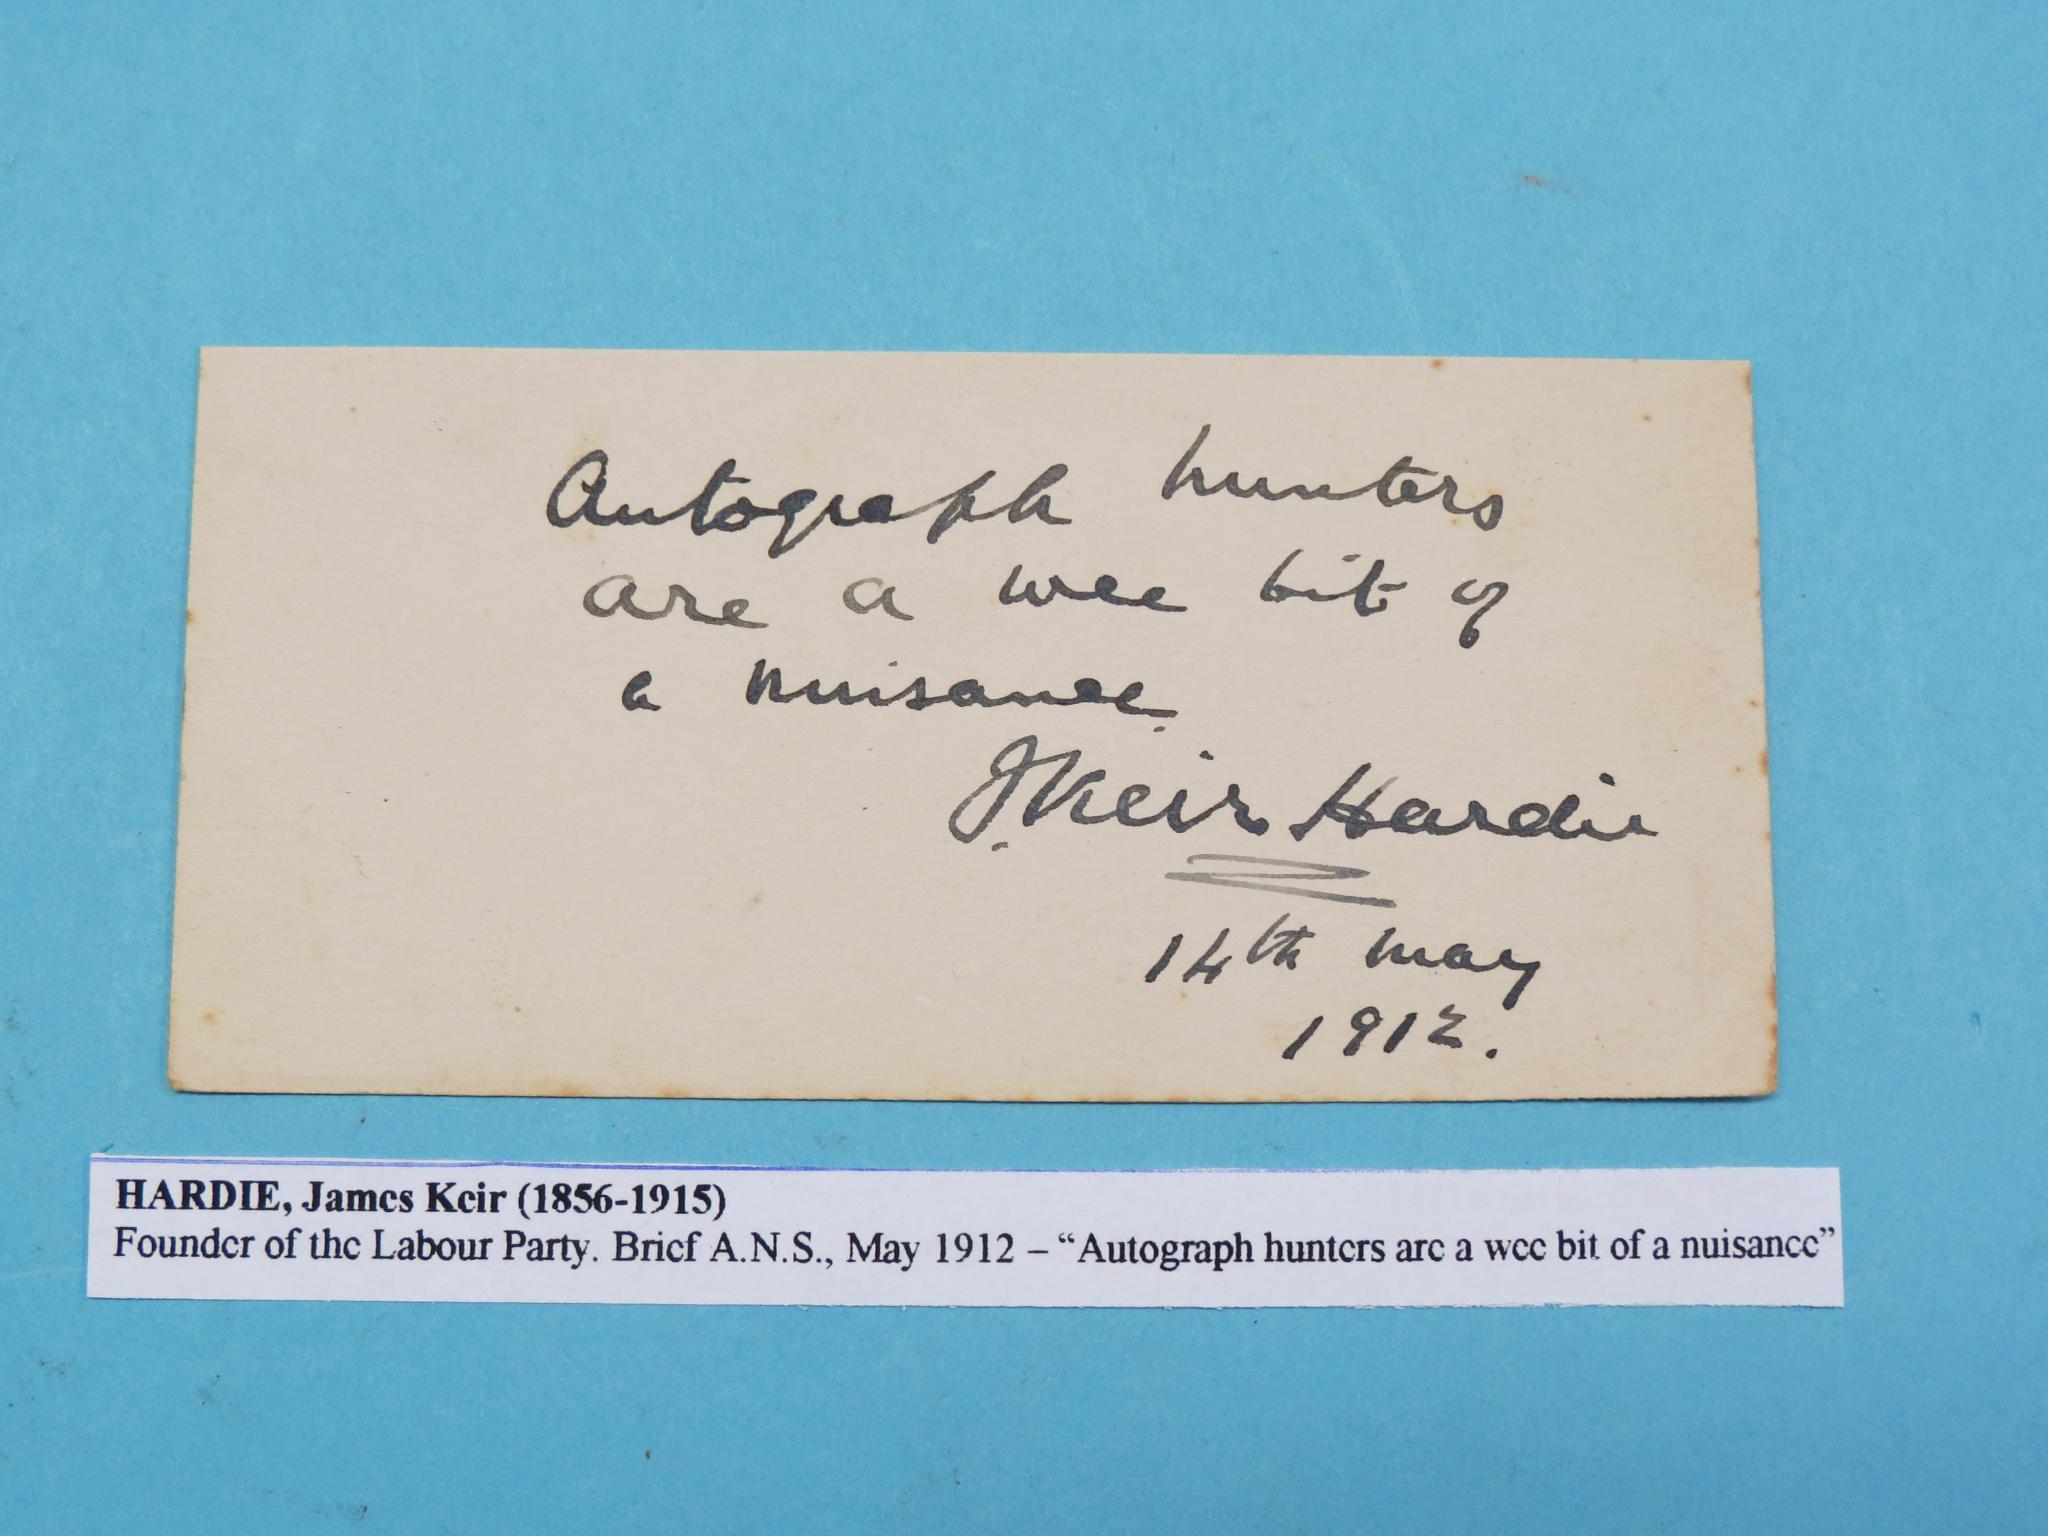 Autograph hunters
are a wee bit of
a nuisance.
J. Keir Hardie
14th May
1912.
HARDIE, James Keir (1856-1915)
Founder of the Labour Party. Brief A.N.S., May 1912 – “Autograph hunters are a wee bit of a nuisance”